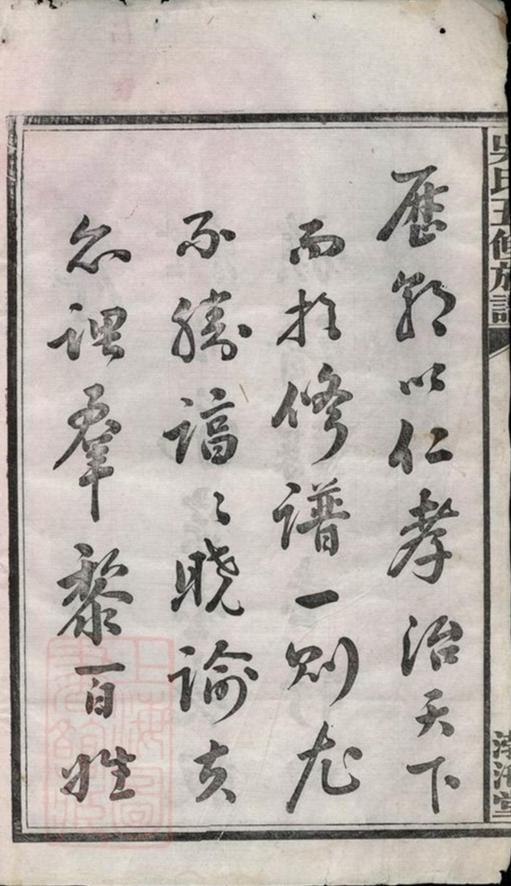 吳氏五修族譜
渤海堂
歷朝以仁孝治天下
而於修譜一則尤
不勝諄〻曉諭夫
謂羣黎百姓